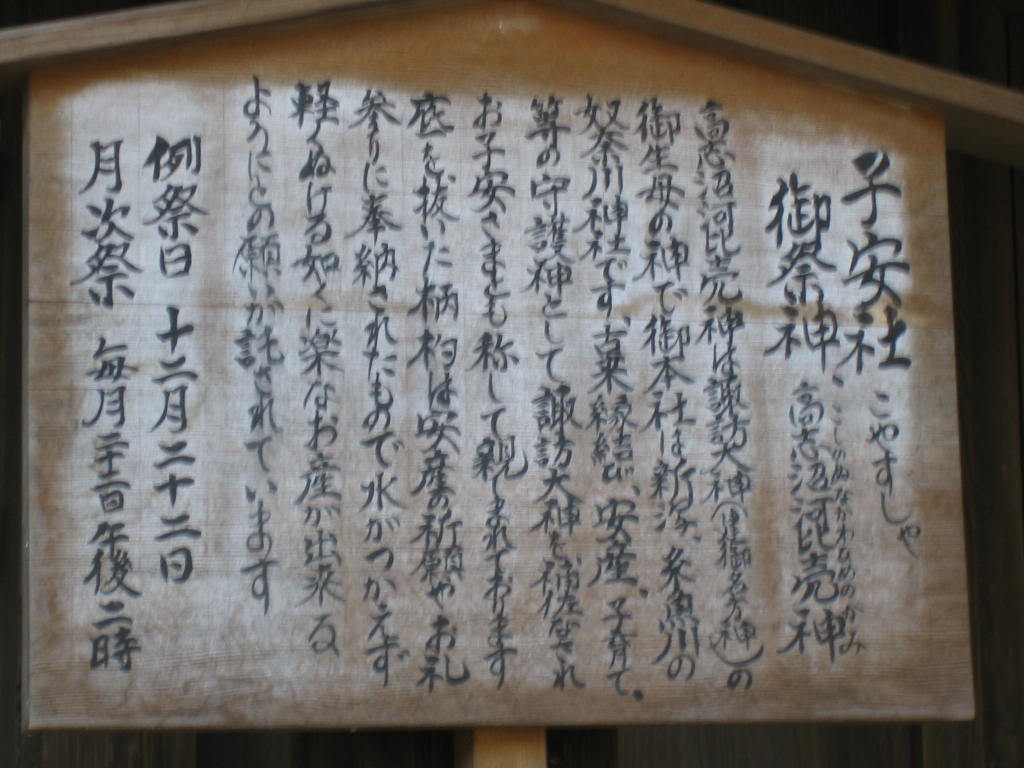 子安社 こやすしゃ
御祭神、高志沼河毘売神 こしのぬなかわひめのかみ
高志沼河毘売神は諏訪大神(建御名方神)の
御生母の神で御本社は新潟、糸魚川の
奴奈川神社です、古来縁結び、安産、子育て、
等の守護神として諏訪大神を補佐なされ
お子安さまとも称して親しまれております
底を抜いた柄杓は安産の祈願やお礼
参りに奉納されたもので水がつかえず
軽くぬける如くに楽なお産が出来る
ようにとの願いが託されています
例祭日 十二月二十二日
月次祭 毎月二十二日午後二時